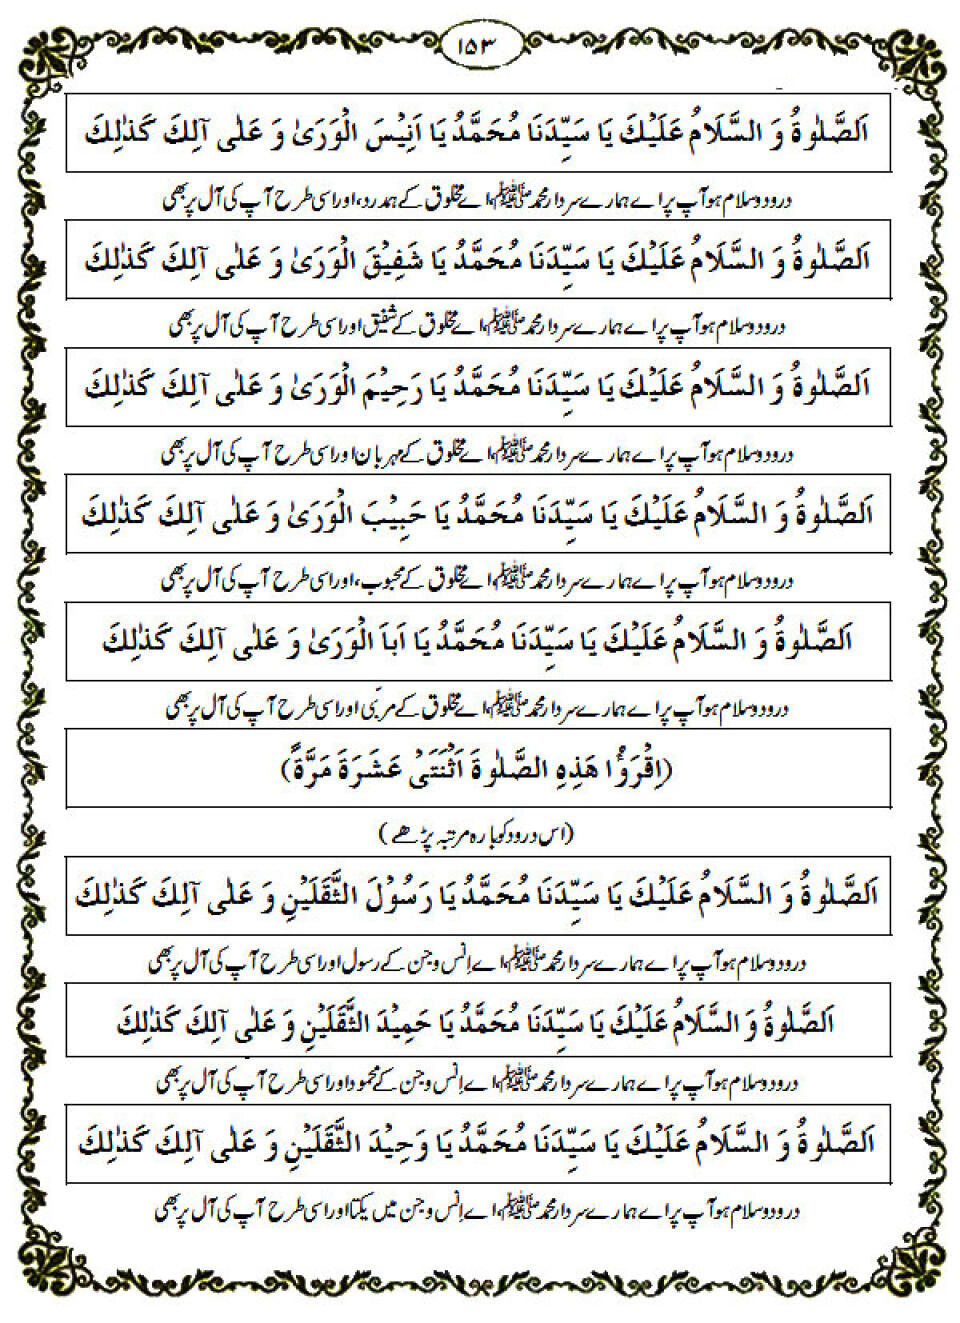 ۱۵۳
اَلصَّلٰوةُ وَ السَّلَامُ عَلَيْكَ يَا سَيِّدَنَا مُحَمَّدُ يَا اَنِيْسَ الْوَرَىٰ وَ عَلٰى آلِكَ كَذٰلِكَ
درود و سلام ہو آپ پر اے ہمارے سردار محمد ﷺ، اے مخلوق کے ہمدرد، اور اسی طرح آپ کی آل پر بھی
اَلصَّلٰوةُ وَ السَّلَامُ عَلَيْكَ يَا سَيِّدَنَا مُحَمَّدُ يَا شَفِيْقَ الْوَرَىٰ وَ عَلٰى آلِكَ كَذٰلِكَ
درود و سلام ہو آپ پر اے ہمارے سردار محمد ﷺ، اے مخلوق کے شفیق اور اسی طرح آپ کی آل پر بھی
اَلصَّلٰوةُ وَ السَّلَامُ عَلَيْكَ يَا سَيِّدَنَا مُحَمَّدُ يَا رَحِيْمَ الْوَرَىٰ وَ عَلٰى آلِكَ كَذٰلِكَ
درود و سلام ہو آپ پر اے ہمارے سردار محمد ﷺ، اے مخلوق کے مہربان اور اسی طرح آپ کی آل پر بھی
اَلصَّلٰوةُ وَ السَّلَامُ عَلَيْكَ يَا سَيِّدَنَا مُحَمَّدُ يَا حَبِيْبَ الْوَرَىٰ وَ عَلٰى آلِكَ كَذٰلِكَ
درود و سلام ہو آپ پر اے ہمارے سردار محمد ﷺ، اے مخلوق کے محبوب، اور اسی طرح آپ کی آل پر بھی
اَلصَّلٰوةُ وَ السَّلَامُ عَلَيْكَ يَا سَيِّدَنَا مُحَمَّدُ يَا اَبَا الْوَرَىٰ وَ عَلٰى آلِكَ كَذٰلِكَ
درود و سلام ہو آپ پر اے ہمارے سردار محمد ﷺ، اے مخلوق کے مربّی اور اسی طرح آپ کی آل پر بھی
(اِقْرَؤُا هَذِهِ الصَّلٰوةَ اَثْنَتَىْ عَشَرَةَ مَرَّةً)
(اس درود کو بارہ مرتبہ پڑھے)
اَلصَّلٰوةُ وَ السَّلَامُ عَلَيْكَ يَا سَيِّدَنَا مُحَمَّدُ يَا رَسُوْلَ الثَّقَلَيْنِ وَ عَلٰى آلِكَ كَذٰلِكَ
درود و سلام ہو آپ پر اے ہمارے سردار محمد ﷺ، اے اِنس و جن کے رسول اور اسی طرح آپ کی آل پر بھی
اَلصَّلٰوةُ وَ السَّلَامُ عَلَيْكَ يَا سَيِّدَنَا مُحَمَّدُ يَا حَمِيْدَ الثَّقَلَيْنِ وَ عَلٰى آلِكَ كَذٰلِكَ
درود و سلام ہو آپ پر اے ہمارے سردار محمد ﷺ، اے اِنس و جن کے محمود اور اسی طرح آپ کی آل پر بھی
اَلصَّلٰوةُ وَ السَّلَامُ عَلَيْكَ يَا سَيِّدَنَا مُحَمَّدُ يَا وَحِيْدَ الثَّقَلَيْنِ وَ عَلٰى آلِكَ كَذٰلِكَ
درود و سلام ہو آپ پر اے ہمارے سردار محمد ﷺ، اے اِنس و جن میں یکتا اور اسی طرح آپ کی آل پر بھی